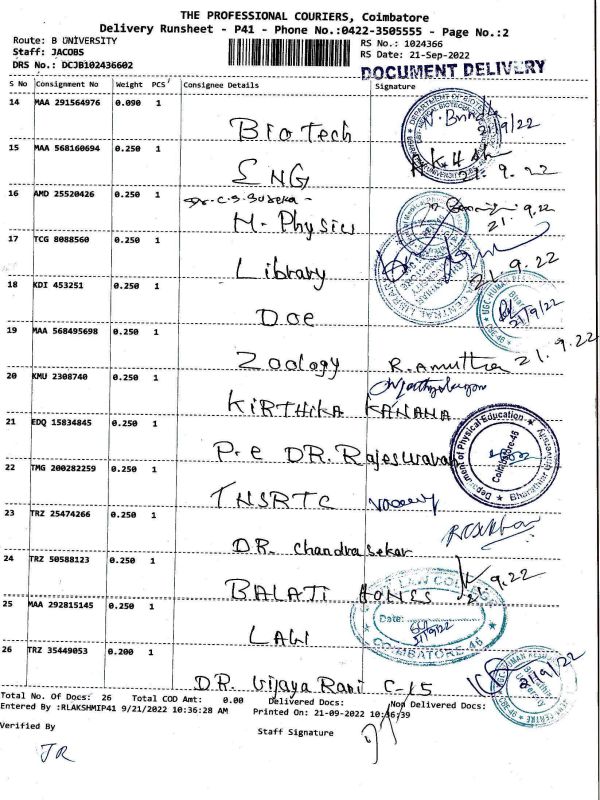 THE PROFESSIONAL COURIERS, Coimbatore
Delivery Runsheet - P41 - Phone No.:0422-3505555 - Page No.:2
Route: B UNIVERSITY
Staff: JACOBS
DRS No.: DCJB102436602
RS No.: 1024366
RS Date: 21-Sep-2022
DOCUMENT DELIVERY
S No Consignment No Weight PCS Consignee Details Signature
14 MAA 291564976 0.090 1
BioTech
21/9/22
15 MAA 568160694 0.250 1
ENG
21. 9. 22
16 AMD 25520426 0.250 1
M. Physics
21. 9.22
17 TCG 8088560 0.250 1
Library
21. 9.22
18 KDI 453251 0.250 1
DOE
21/9/22
19 MAA 568495698 0.250 1
Zoology R. Amutha 21. 9.22
20 KMU 2308740 0.250 1
KIRTHIKA KANANA
21 EDQ 15834845 0.250 1
P.e DR. Rajeswaran
Department of Physical Education
Coimbatore-46
Bharathiar University
22 TMG 200282259 0.250 1
TNSRTC
23 TRZ 25474266 0.250 1
DR. Chandra Sekar
24 TRZ 50588123 0.250 1
BALATI HOMES
9.22
25 MAA 292815145 0.250 1
LAW
LAW COLLEGE
Date:
21/9/22
COIMBATORE-46
26 TRZ 35449053 0.200 1
DR. Vijaya Rani C-15
21/9/22
Total No. Of Docs: 26 Total COD Amt: 0.00 Delivered Docs: Non Delivered Docs:
Entered By :RLAKSHMIP41 9/21/2022 10:36:28 AM Printed On: 21-09-2022 10:36:39
Verified By
Staff Signature
JR